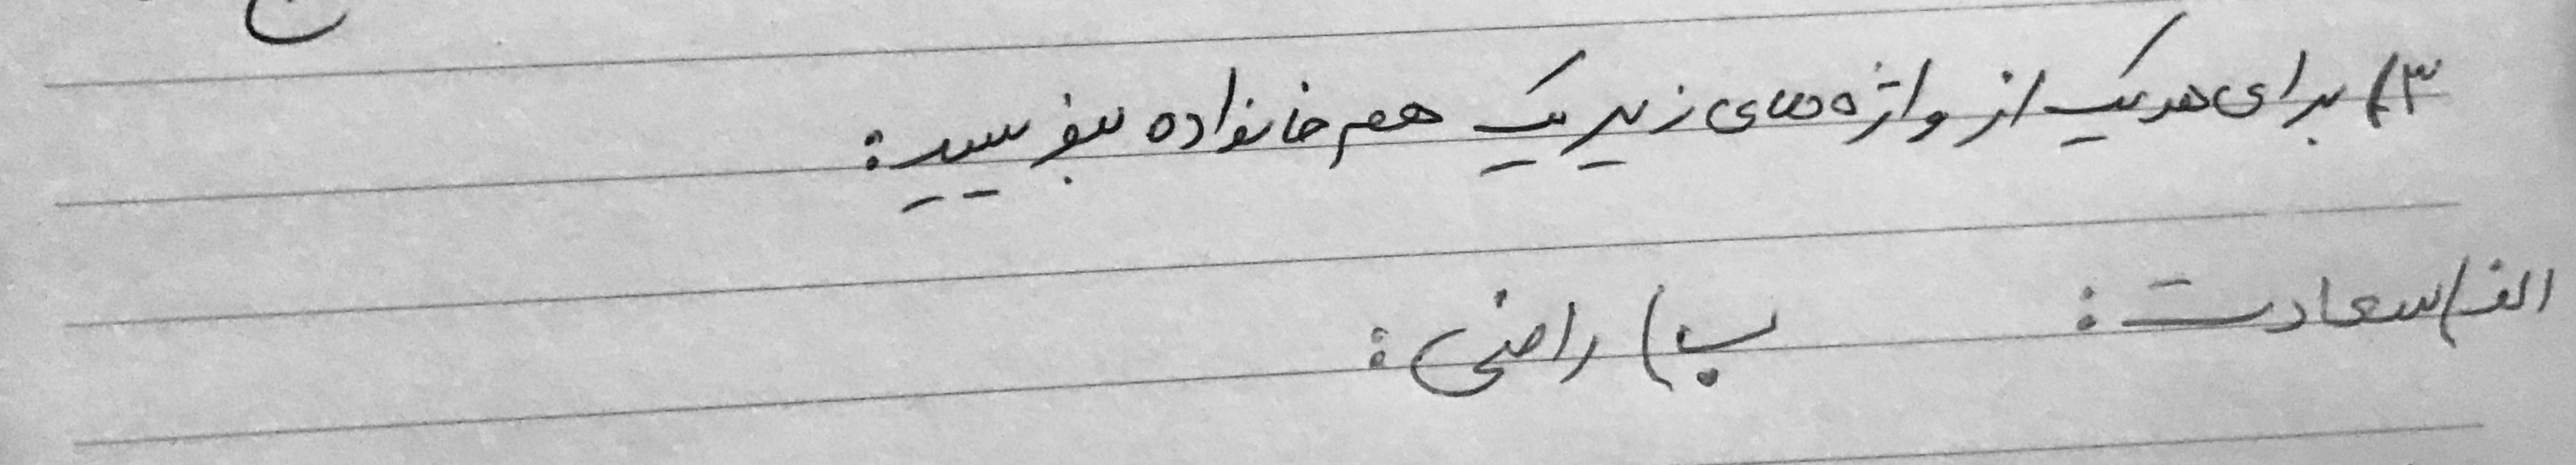 ۳) برای هر یک از واژه‌های زیر یک هم خانواده بنویسید:
الف) سعادت: ب) راضی: